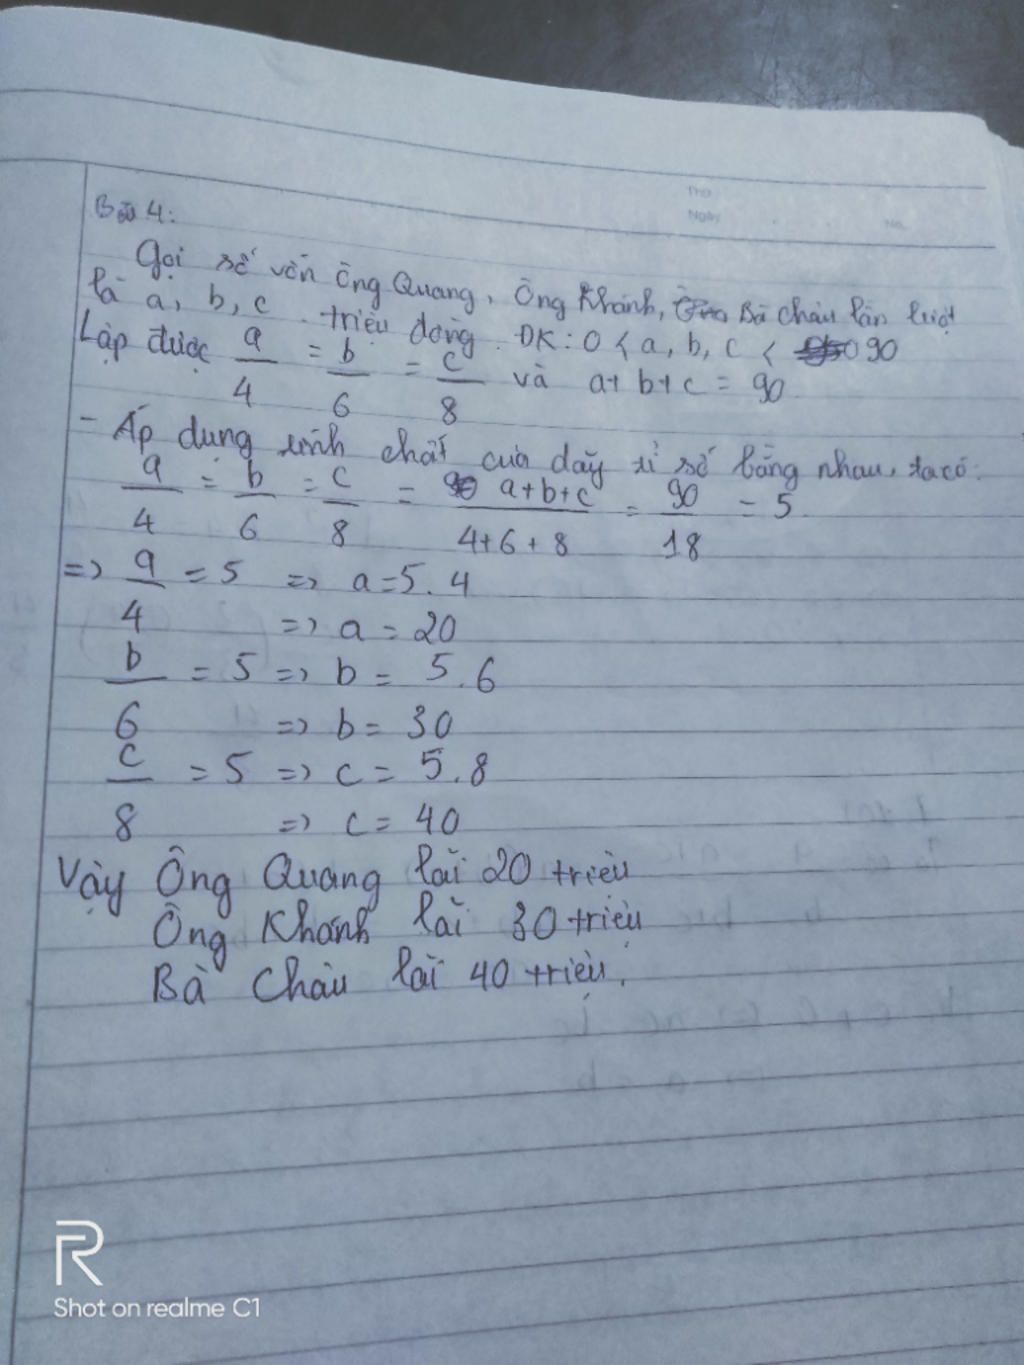 Thứ
Ngày No.
Bài 4:
Gọi số vốn Ông Quang, Ông Khánh, Bà Châu lần lượt
là a, b, c triệu đồng. ĐK: 0 < a, b, c < 90
Lập được a/4 = b/6 = c/8 và a+b+c = 90
- Áp dụng tính chất của dãy tỉ số bằng nhau, ta có:
a/4 = b/6 = c/8 = a+b+c/4+6+8 = 90/18 = 5.
=> a/4 = 5 => a=5.4
=> a = 20
b/6 = 5 => b = 5.6
=> b = 30
c/8 = 5 => c = 5.8
=> c = 40
Vậy Ông Quang lãi 20 triệu
Ông Khánh lãi 30 triệu
Bà Châu lãi 40 triệu.
R
Shot on realme C1